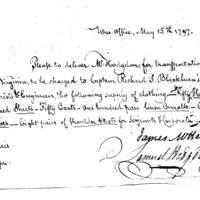 War Office, May 15th 1797.
Please to deliver Mr Hodgdon for transportation
Virginia, to be charged to Captain Richard S. Blackburn's
& Engineers, the following supply of clothing Fifty
Shirts - Fifty Coats - One hundred pair Linen Overalls -
Eight pairs of Shoulder Knots for Sergeants & Corporals
James McHen
Samuel Hodgd